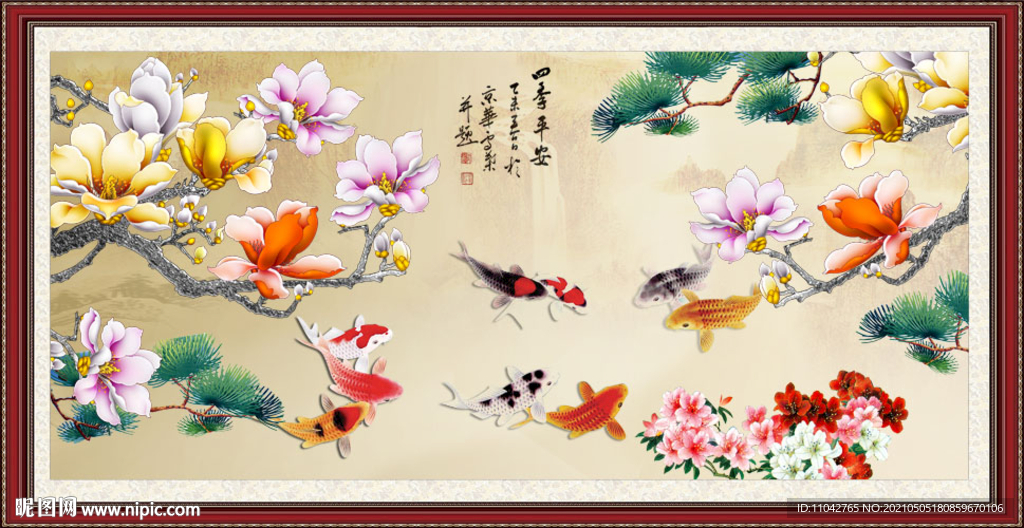 四季平安
京華
并題
昵图网 www.nipic.com
ID:11042765 NO:20210505180859670106